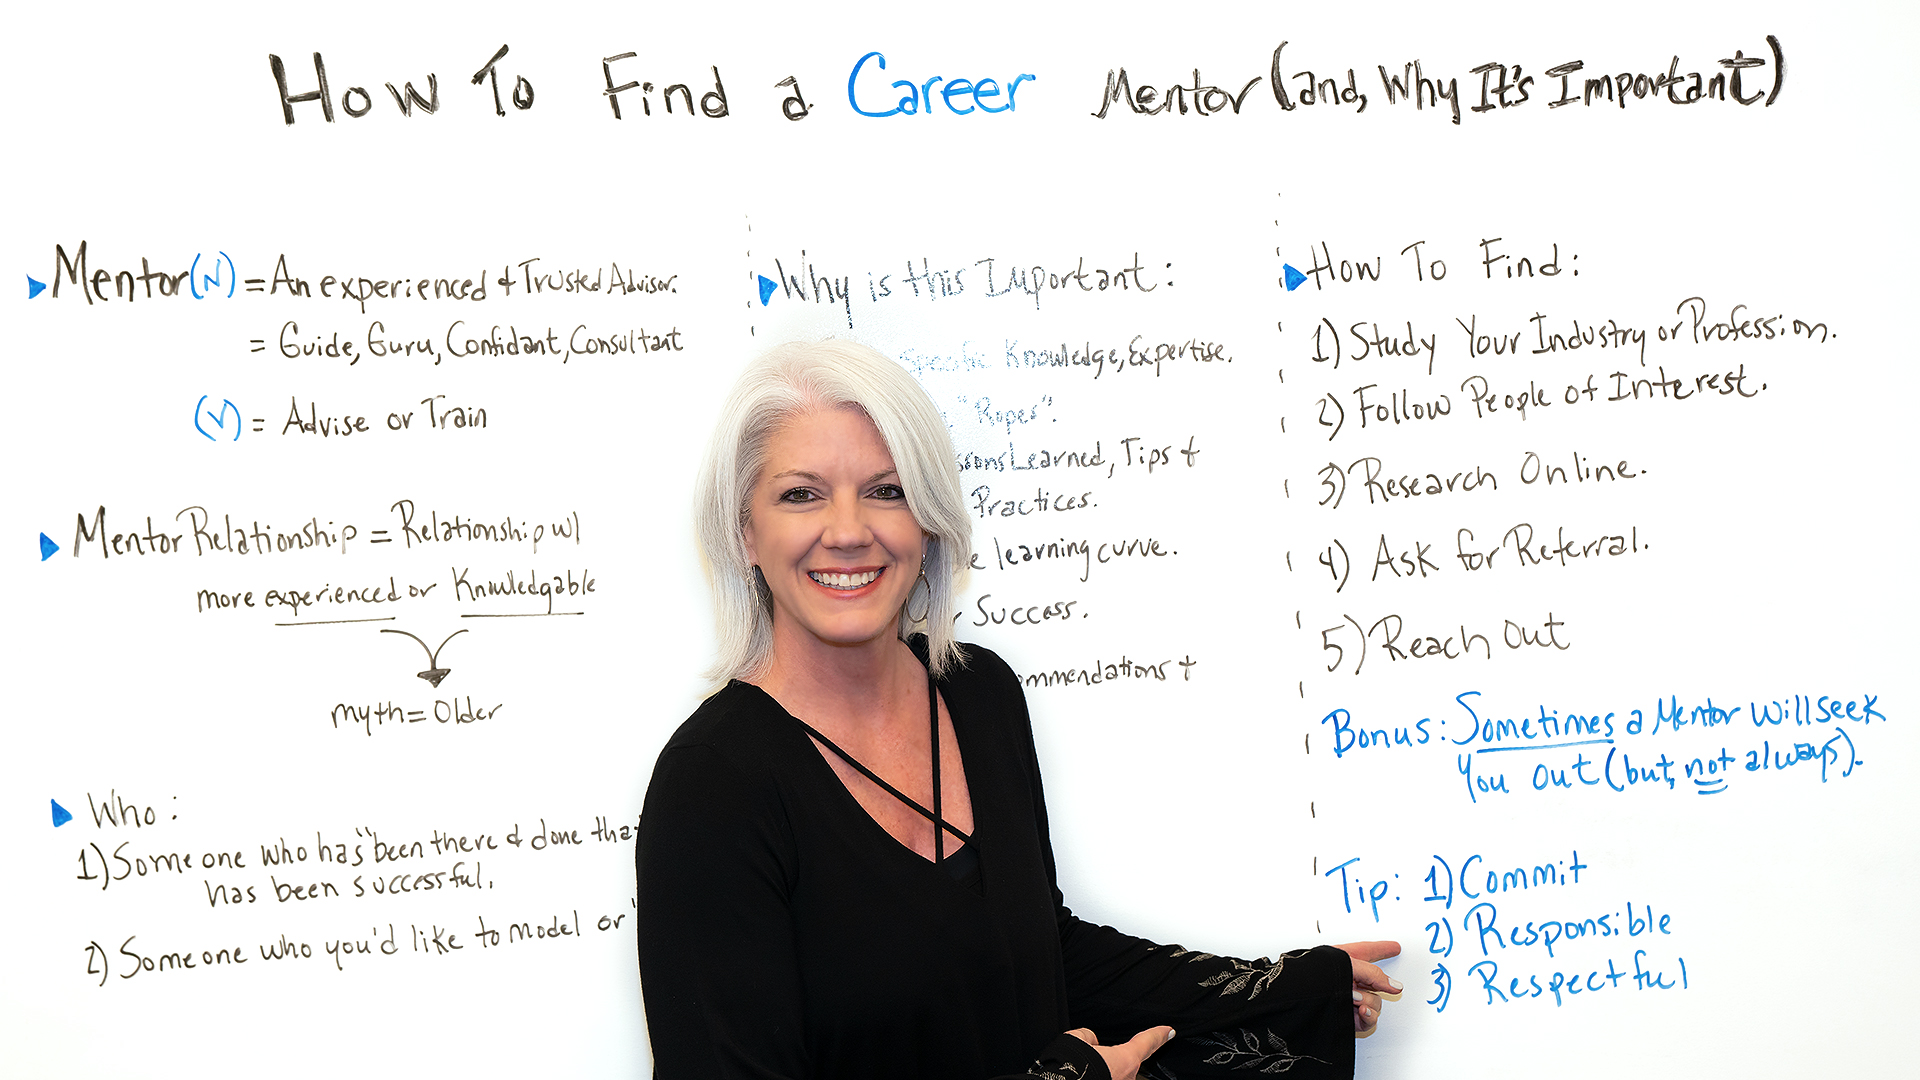 How To Find a Career Mentor (and, Why It's Important)
Mentor (N) = An experienced & Trusted Advisor.
= Guide, Guru, Confidant, Consultant
(V) = Advise or Train
Mentor Relationship = Relationship w/
more experienced or Knowledgable
myth = Older
Who:
1) Someone who has "been there & done
has been successful.
2) Someone who you'd like to model or
Why is this Important:
Specific Knowledge, Expertise.
"Ropes".
Learned, Tips &
Practices.
learning curve.
Success.
&
How To Find:
1) Study Your Industry or Profession.
2) Follow People of Interest.
3) Research Online.
4) Ask for Referral.
5) Reach Out
Bonus: Sometimes a Mentor will seek
You out (but, not always).
Tip: 1) Commit
2) Responsible
3) Respectful